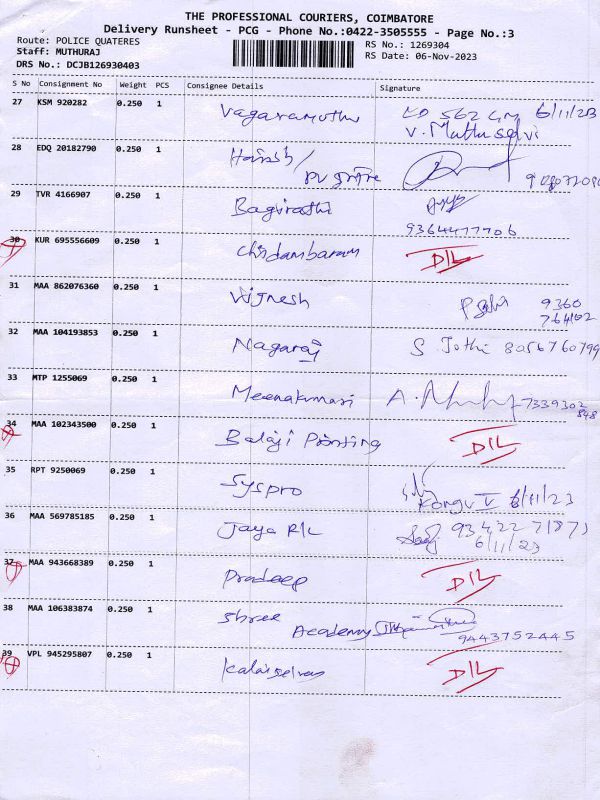 THE PROFESSIONAL COURIERS, COIMBATORE
Delivery Runsheet - PCG - Phone No.:0422-3505555 - Page No.:3
Route: POLICE QUATERES
Staff: MUTHURAJ
DRS No.: DCJB126930403
RS No.: 1269304
RS Date: 06-Nov-2023
S No Consignment No Weight PCS Consignee Details Signature
27 KSM 920282 0.250 1 Vagaramuthu ED 562 GM 6/11/23
V. Muthu selvi
28 EDQ 20182790 0.250 1 Harish/
29 TVR 4166907 0.250 1 Bagirathi
9364477706
30 KUR 695556609 0.250 1 Chidambaram D/L
31 MAA 862076360 0.250 1 Vignesh 9360
764102
32 MAA 104193853 0.250 1 Nagaraj S Jothi 8056760799
33 MTP 1255069 0.250 1 Meenakumari A. 7339302
848
34 MAA 102343500 0.250 1 Balaji Printing D/L
35 RPT 9250069 0.250 1 Syspro
Kongu V 6/11/23
36 MAA 569785185 0.250 1 Jaya R/L
6/11/23
37 MAA 943668389 0.250 1 Pradeep D/L
38 MAA 106383874 0.250 1 Shree
Academy 9443752445
39 VPL 945295807 0.250 1 Kalaiselvan D/L